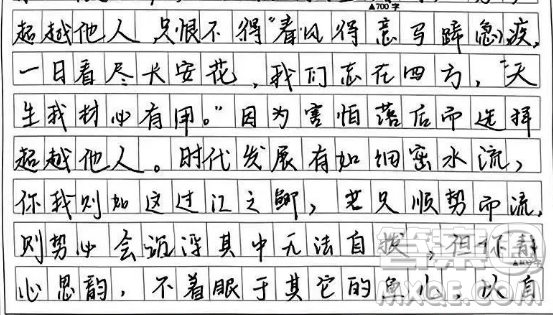 ▲700字
超越他人，只恨不得“春风得意马蹄急疾，
一日看尽长安花，我们志在四方，“天
生我材必有用。”因为害怕落后而选择
超越他人。时代发展有如细密水流，
你我则如这过江之鲫，若只顺势而流，
则势必会沉浮其中无法自拔，但你静
心思韵，不着眼于其它的鱼儿，以自